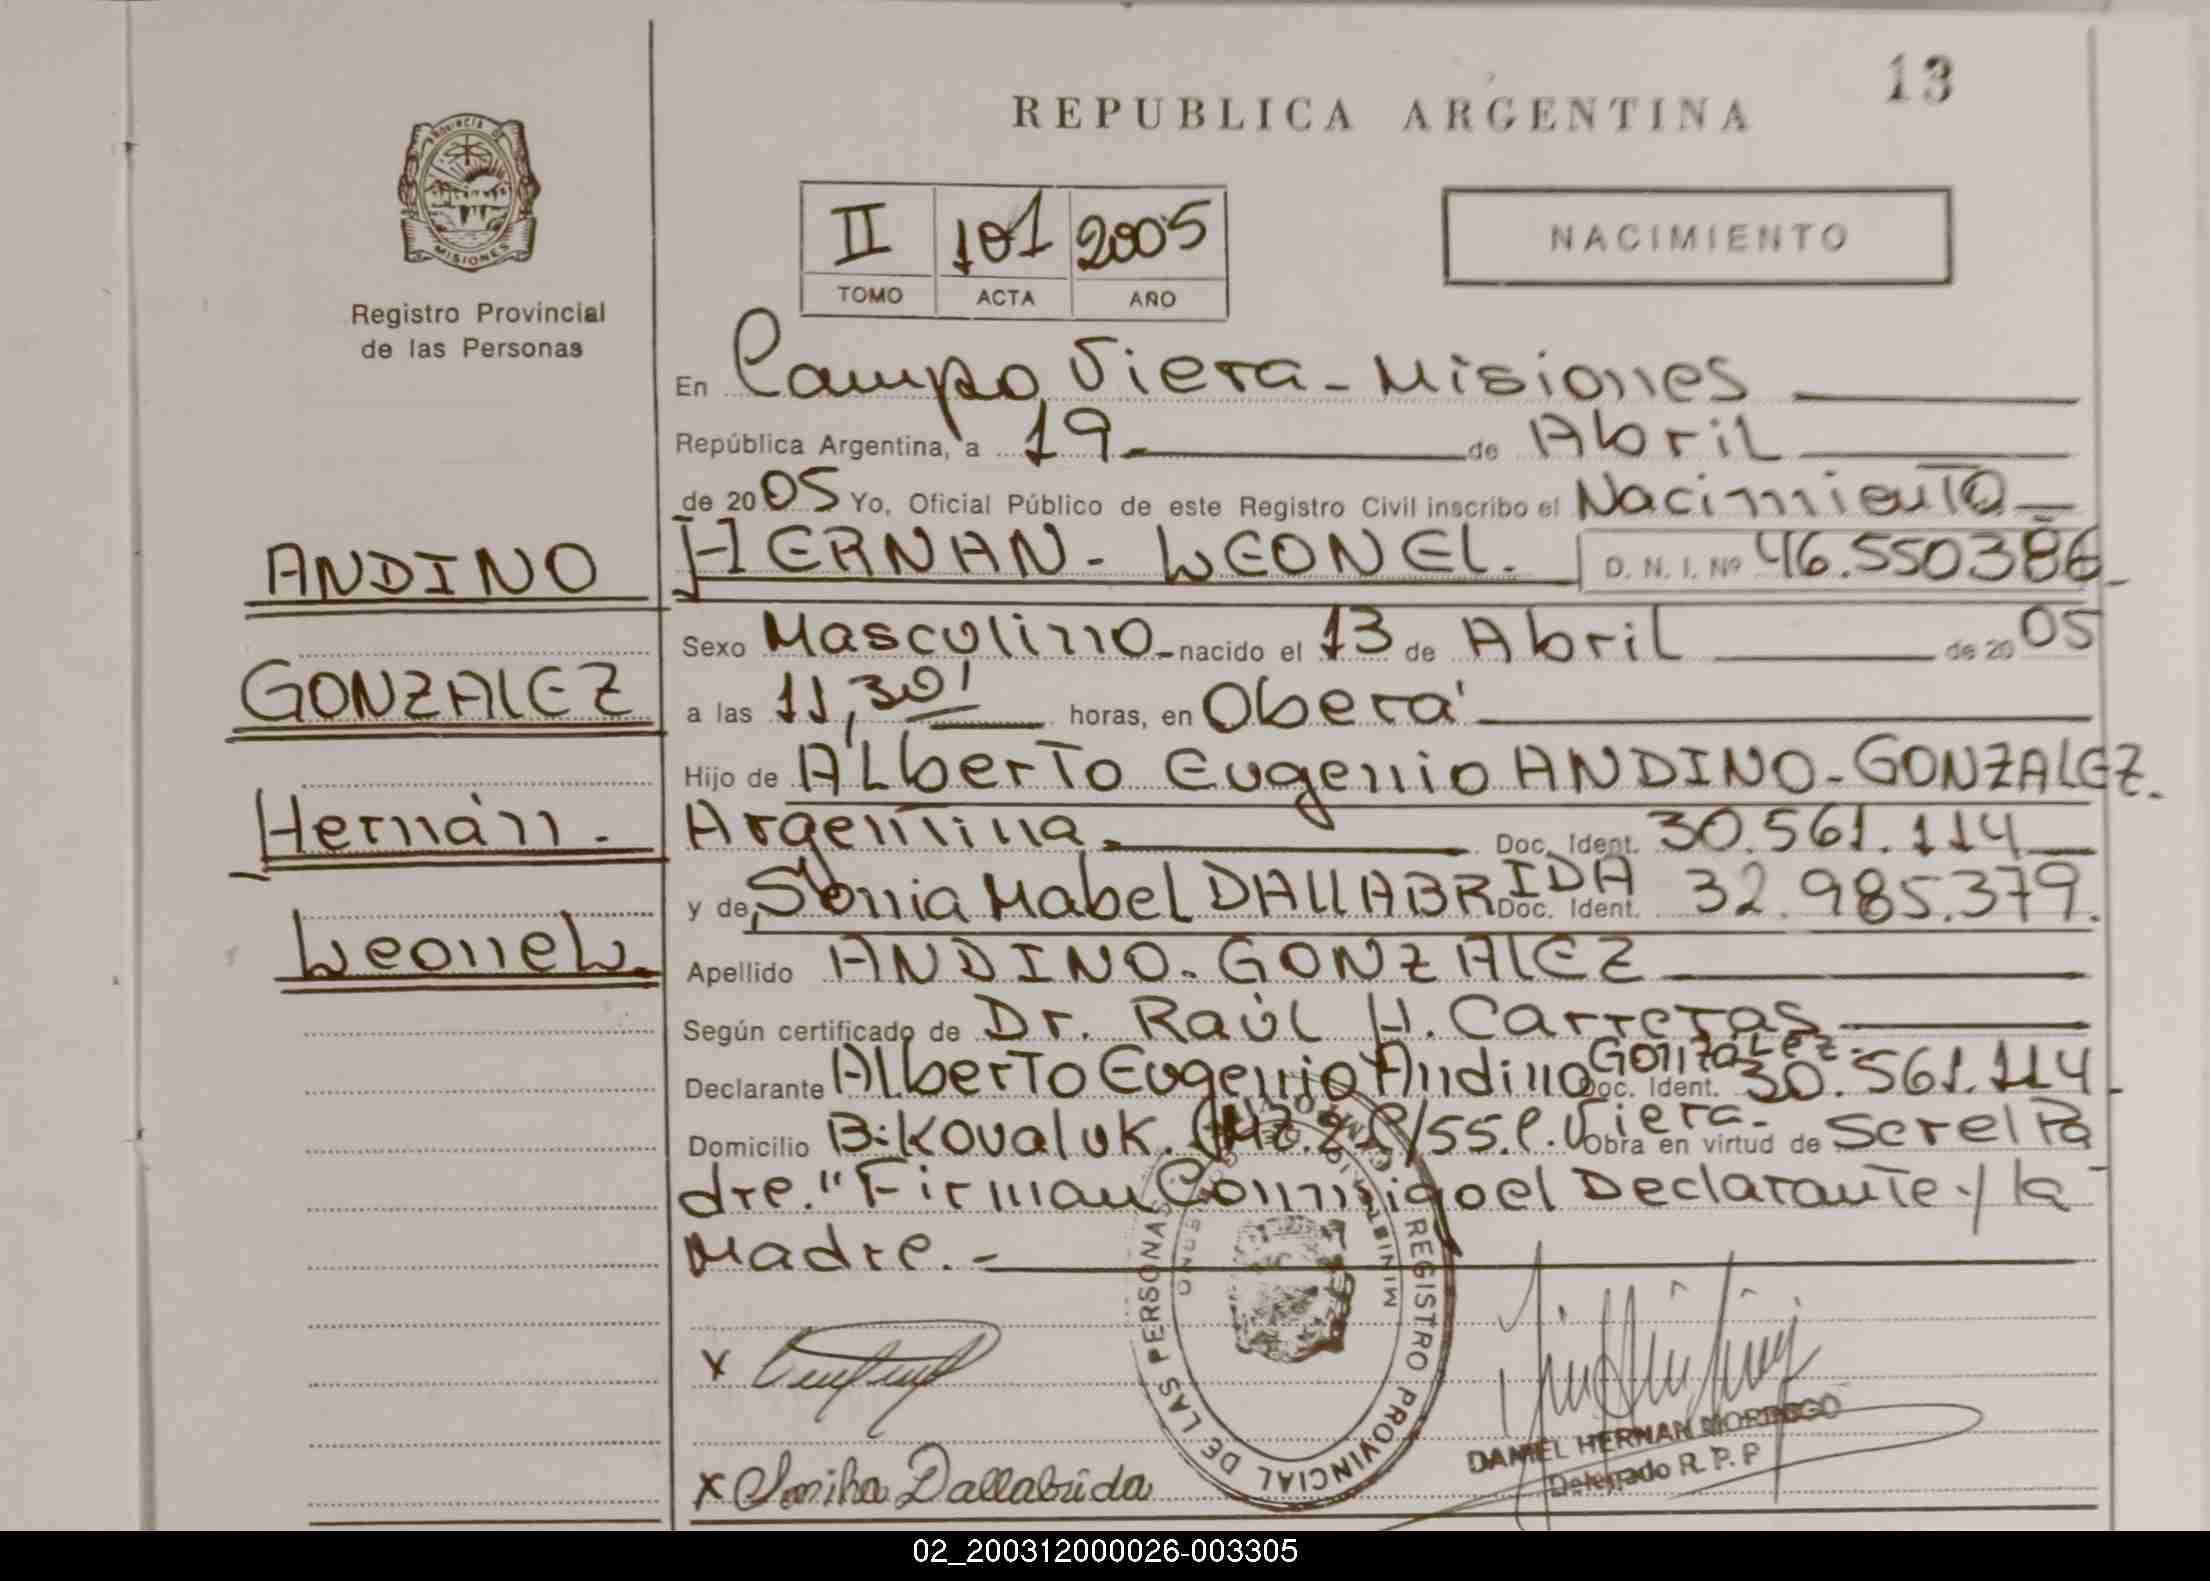 REPUBLICA ARGENTINA
13
PROVINCIA DE
MISIONES
Registro Provincial
de las Personas
II 101 2005
TOMO ACTA AÑO
NACIMIENTO
En Campo Viera - Misiones
República Argentina, a 19 de Abril
de 2005 Yo, Oficial Público de este Registro Civil inscribo el Nacimiento
ANDINO
GONZALEZ
Hernán.
Leonel.
HERNAN - LEONEL. D. N. I. Nº 46.550386
Sexo Masculino nacido el 13 de Abril de 2005
a las 11,30' horas, en Oberá
Hijo de Alberto Eugenio ANDINO - GONZALEZ.
Argentina Doc. Ident. 30.561.114
y de Sonia Mabel DALLABRIDA Doc. Ident. 32.985.379.
Apellido ANDINO - GONZALEZ
Según certificado de Dr. Raúl H. Carreras
Declarante Alberto Eugenio Andino Gonzalez. Doc. Ident. 30.561.114.
Domicilio B: Kovaluk. C/55. C. Viera. Obra en virtud de Ser el Pa
dre." Firman Conmigo el Declarante y la
Madre.-
MINISTERIO DE GOBIERNO
REGISTRO PROVINCIAL DE LAS PERSONAS
X
X Soniha Dallabrida
DANIEL HERNAN
Delegado R. P. P
02_200312000026-003305